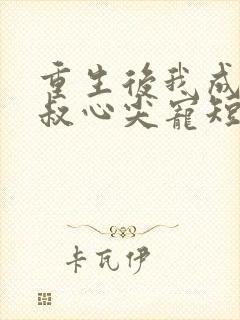 重生後我成
叔心尖寵短
卡瓦伊